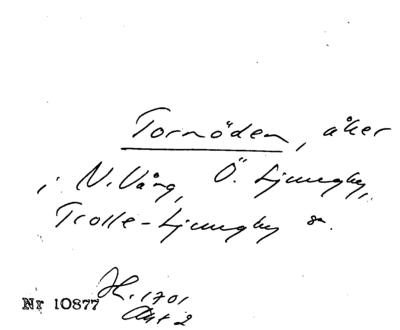 Tornöden, åker
i N. Vång, Ö. Ljungby,
Trolle-Ljungby sn.
H. 1701
Akt 2
Nr 10877